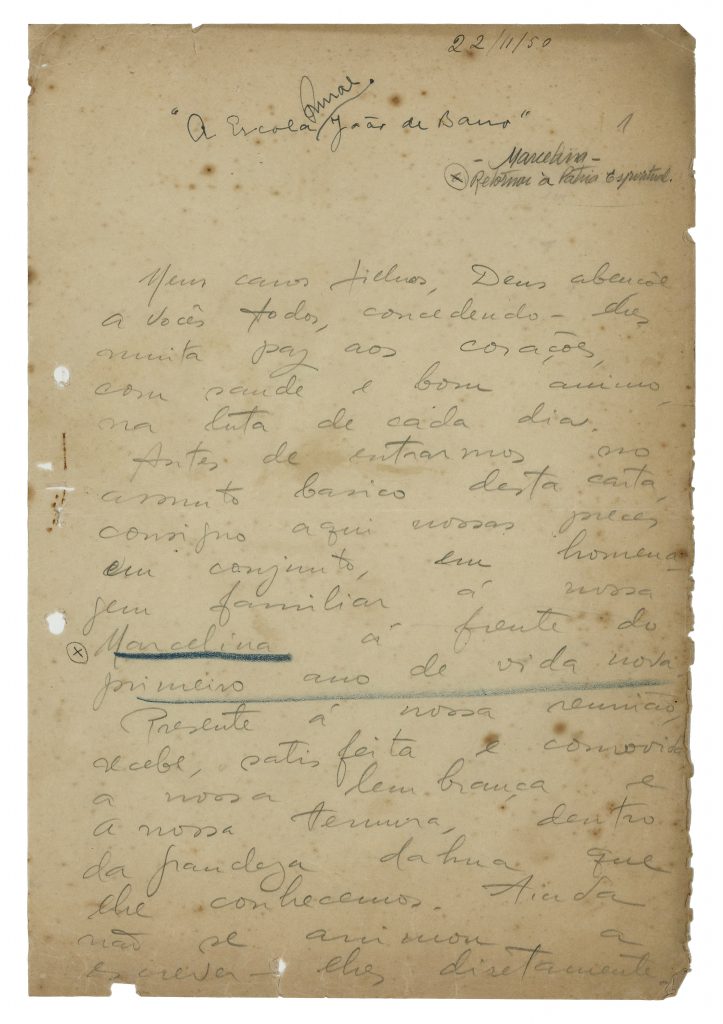 22/11/50
Rural
"A Escola João de Barro"
1
- Marcelina -
Retornou à Pátria Espiritual.
Meus caros filhos, Deus abençôe
a vocês todos, concedendo-lhes
muita paz aos corações,
com saude e bom ânimo,
na luta de cada dia.
Antes de entrarmos no
assunto basico desta carta,
consigno aqui nossas preces
em conjunto, em homena-
gem familiar á nossa
Marcelina á frente do
primeiro ano de vida nova.
Presente á nossa reunião,
recebe, satisfeita e comovida
a nossa lembrança e
a nossa ternura, dentro
da grandeza dalma que
lhe conhecemos. Ainda
não se animou a
escrever-lhes diretamente,